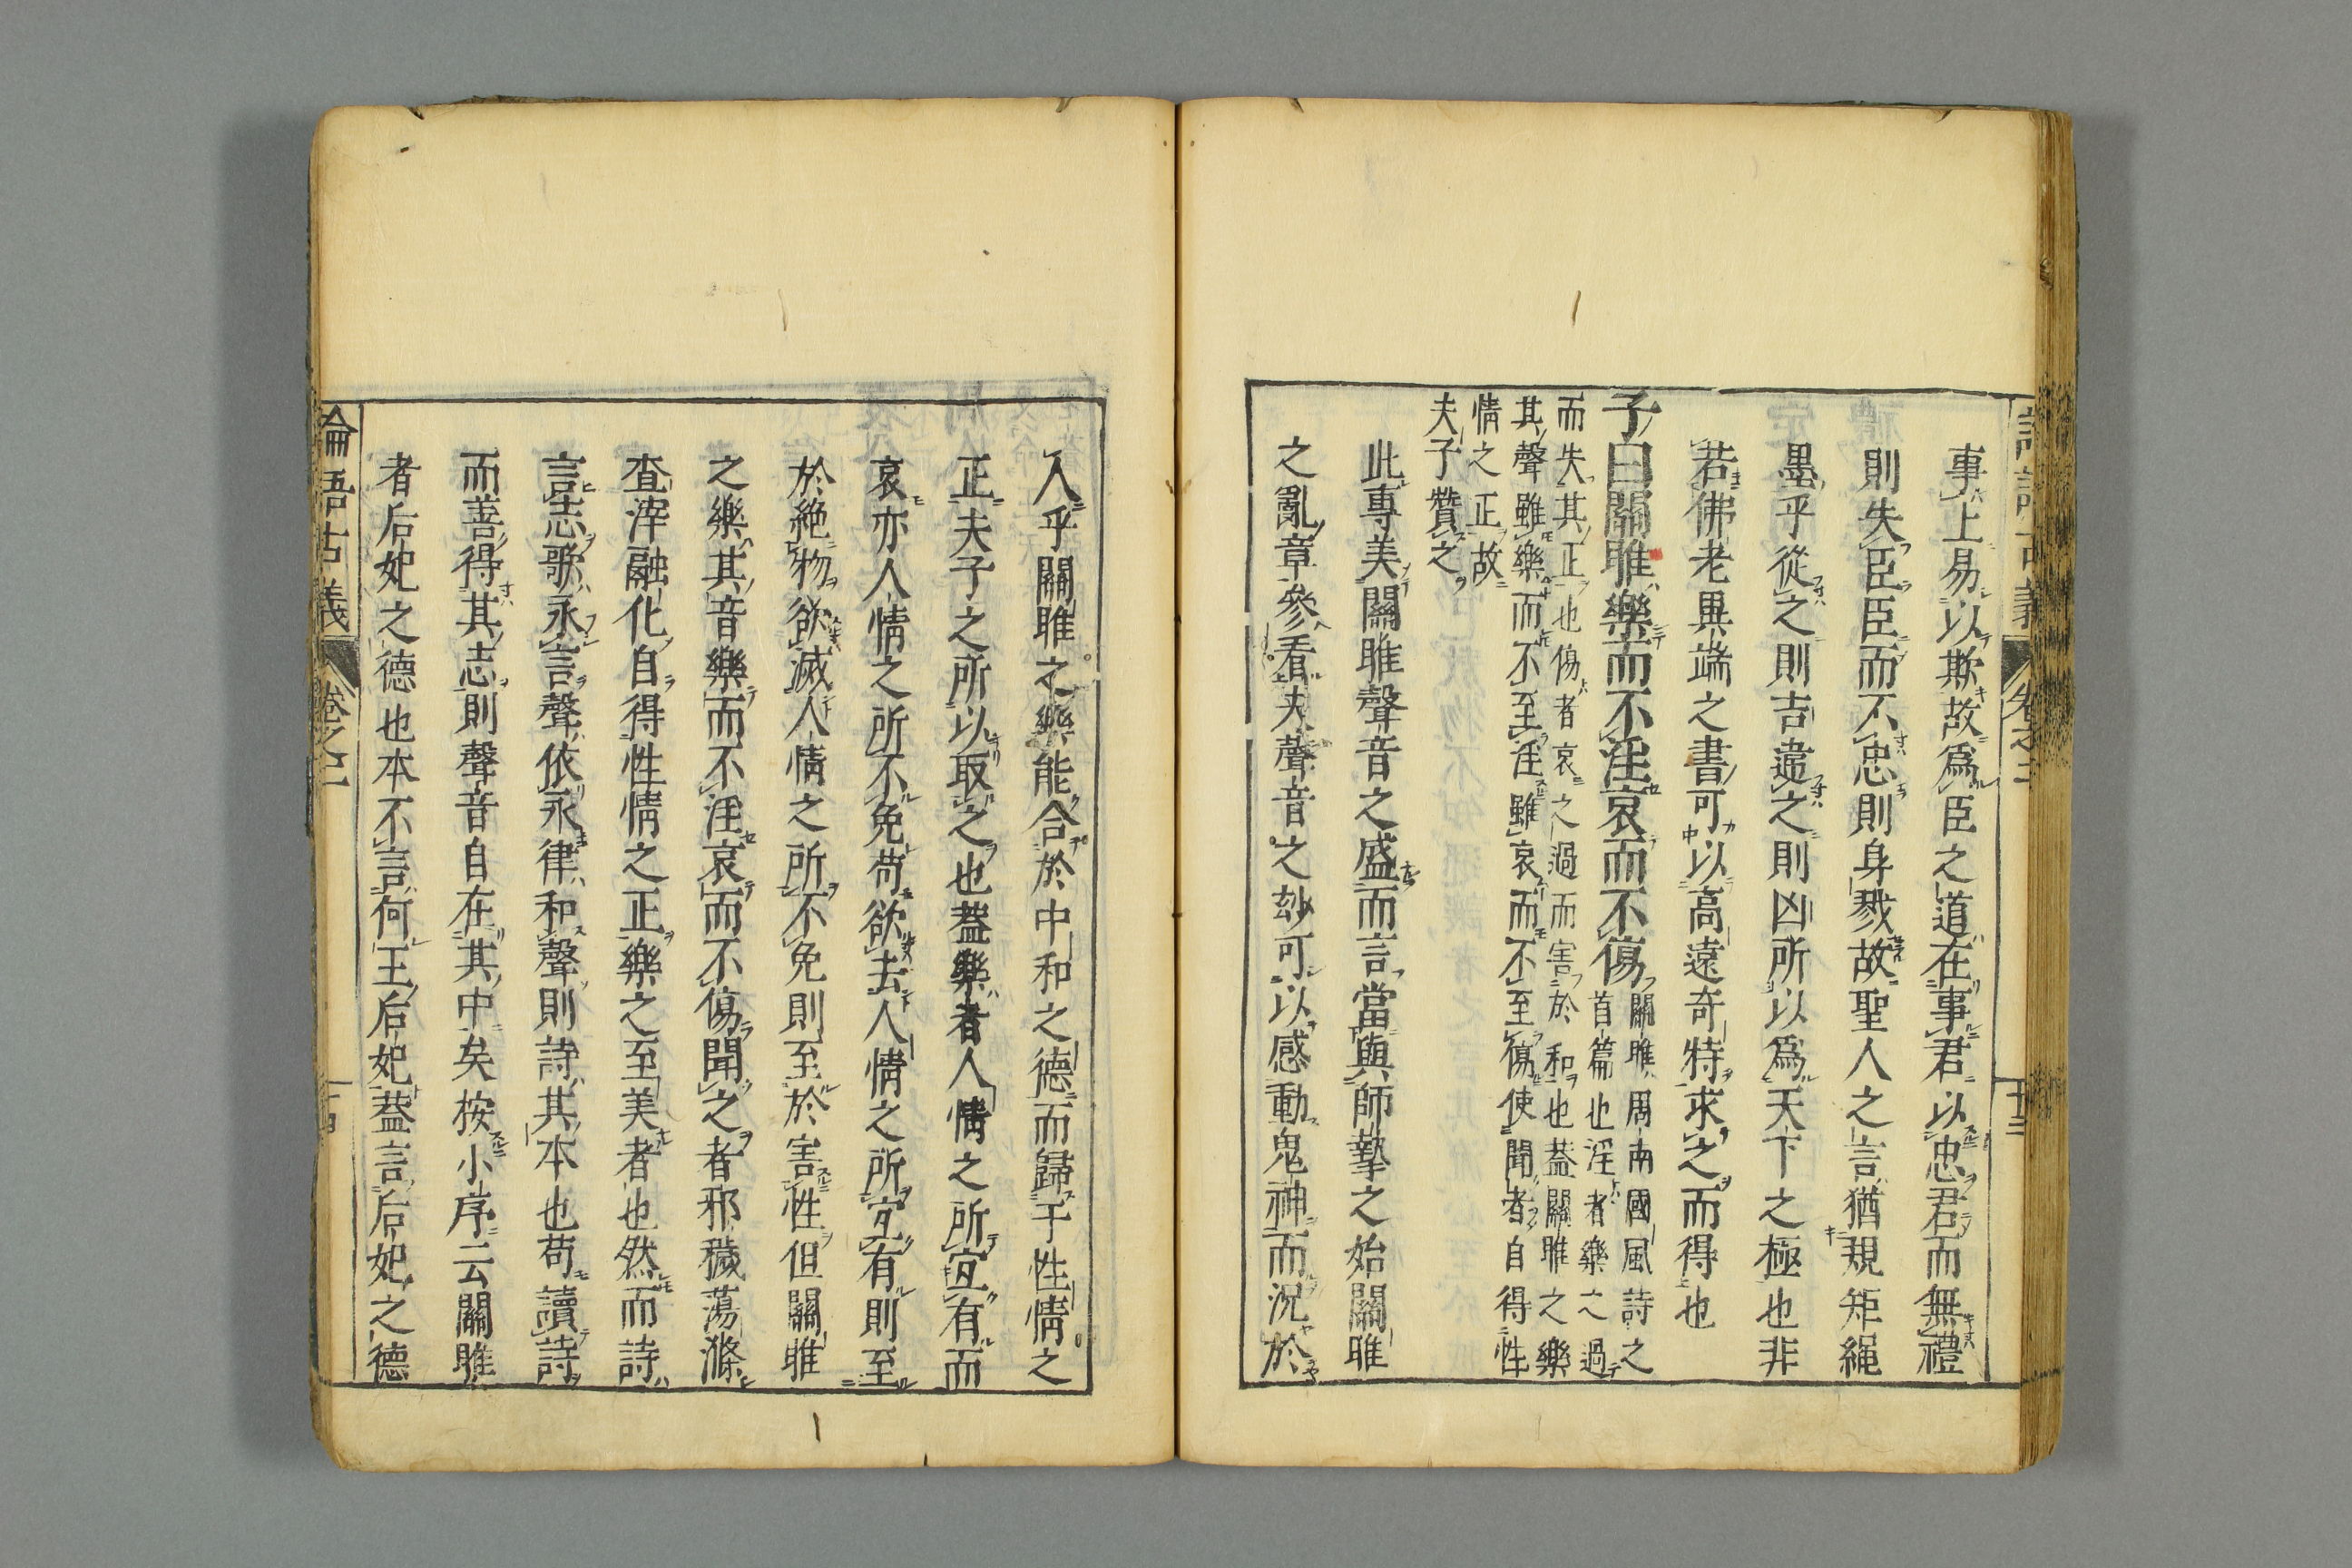 事上易以欺故為臣之道在事君以忠君而無禮
則失臣臣而不忠則身戮故聖人之言猶規矩繩
墨乎從之則吉違之則凶所以為天下之極也非
若佛老異端之書可以高遠奇特求之而得也
子曰關雎樂而不淫哀而不傷
關雎周南國風詩之
首篇也淫者樂之過
而失其正也傷者哀之過而害於和也蓋關雎之樂
其聲雖樂而不至淫雖哀而不至傷使聞者自得性
情之正故
夫子贊之
此專美關雎聲音之盛而言當與師摯之始關雎
之亂章參看夫聲音之玅可以感動鬼神而況於
人乎關雎之樂能合於中和之德而歸于性情之
正夫子之所以取之也蓋樂者人情之所宜有而
哀亦人情之所不免苟欲去人情之所宜有則至
於絶物欲滅人情之所不免則至於害性但關雎
之樂其音樂而不淫哀而不傷聞之者邪穢蕩滌
査滓融化自得性情之正樂之至美者也然而詩
言志歌永言聲依永律和聲則詩其本也苟讀詩
而善得其志則聲音自在其中矣按小序云關雎
者后妃之德也本不言何王后妃蓋言后妃之德
論語古義 卷之二 十四